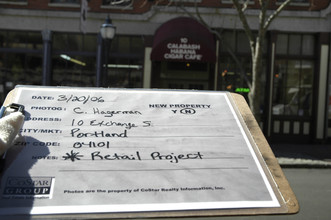 10
CALABASH
HABANA
CIGAR CAFE
DATE: 3/20/06
NEW PROPERTY
PHOTOG: C. Hagerman Y N
ADDRESS: 10 Exchange S
CITY/MKT: Portland
ZIP CODE: 04101
NOTES: * Retail Project
COSTAR
GROUP
Photos are the property of CoStar Realty Information, Inc.